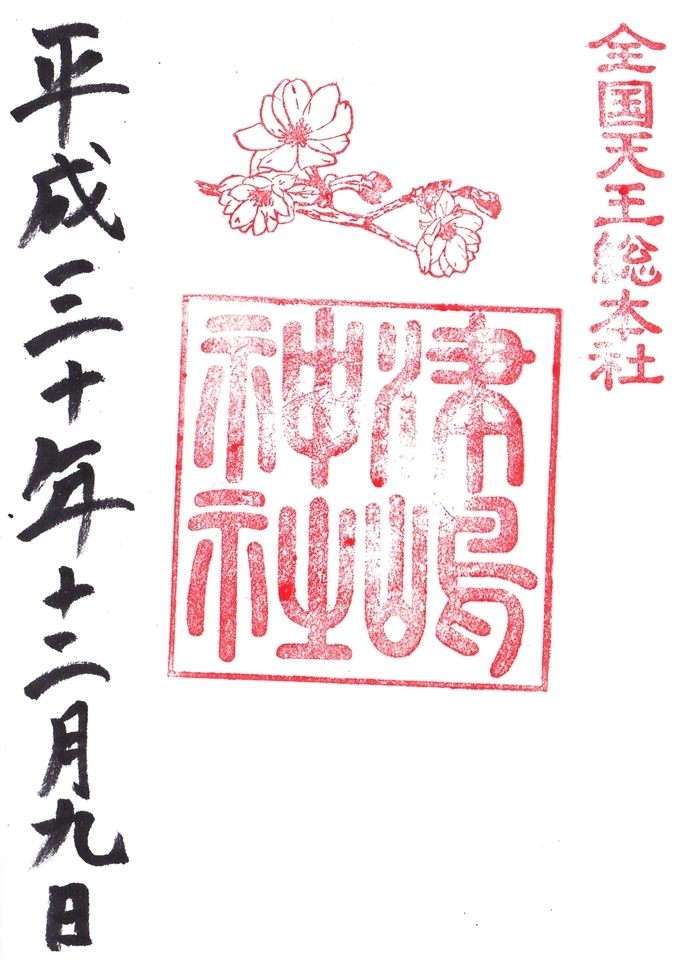 全国天王総本社
津嶋
神社
平成三十年十二月九日